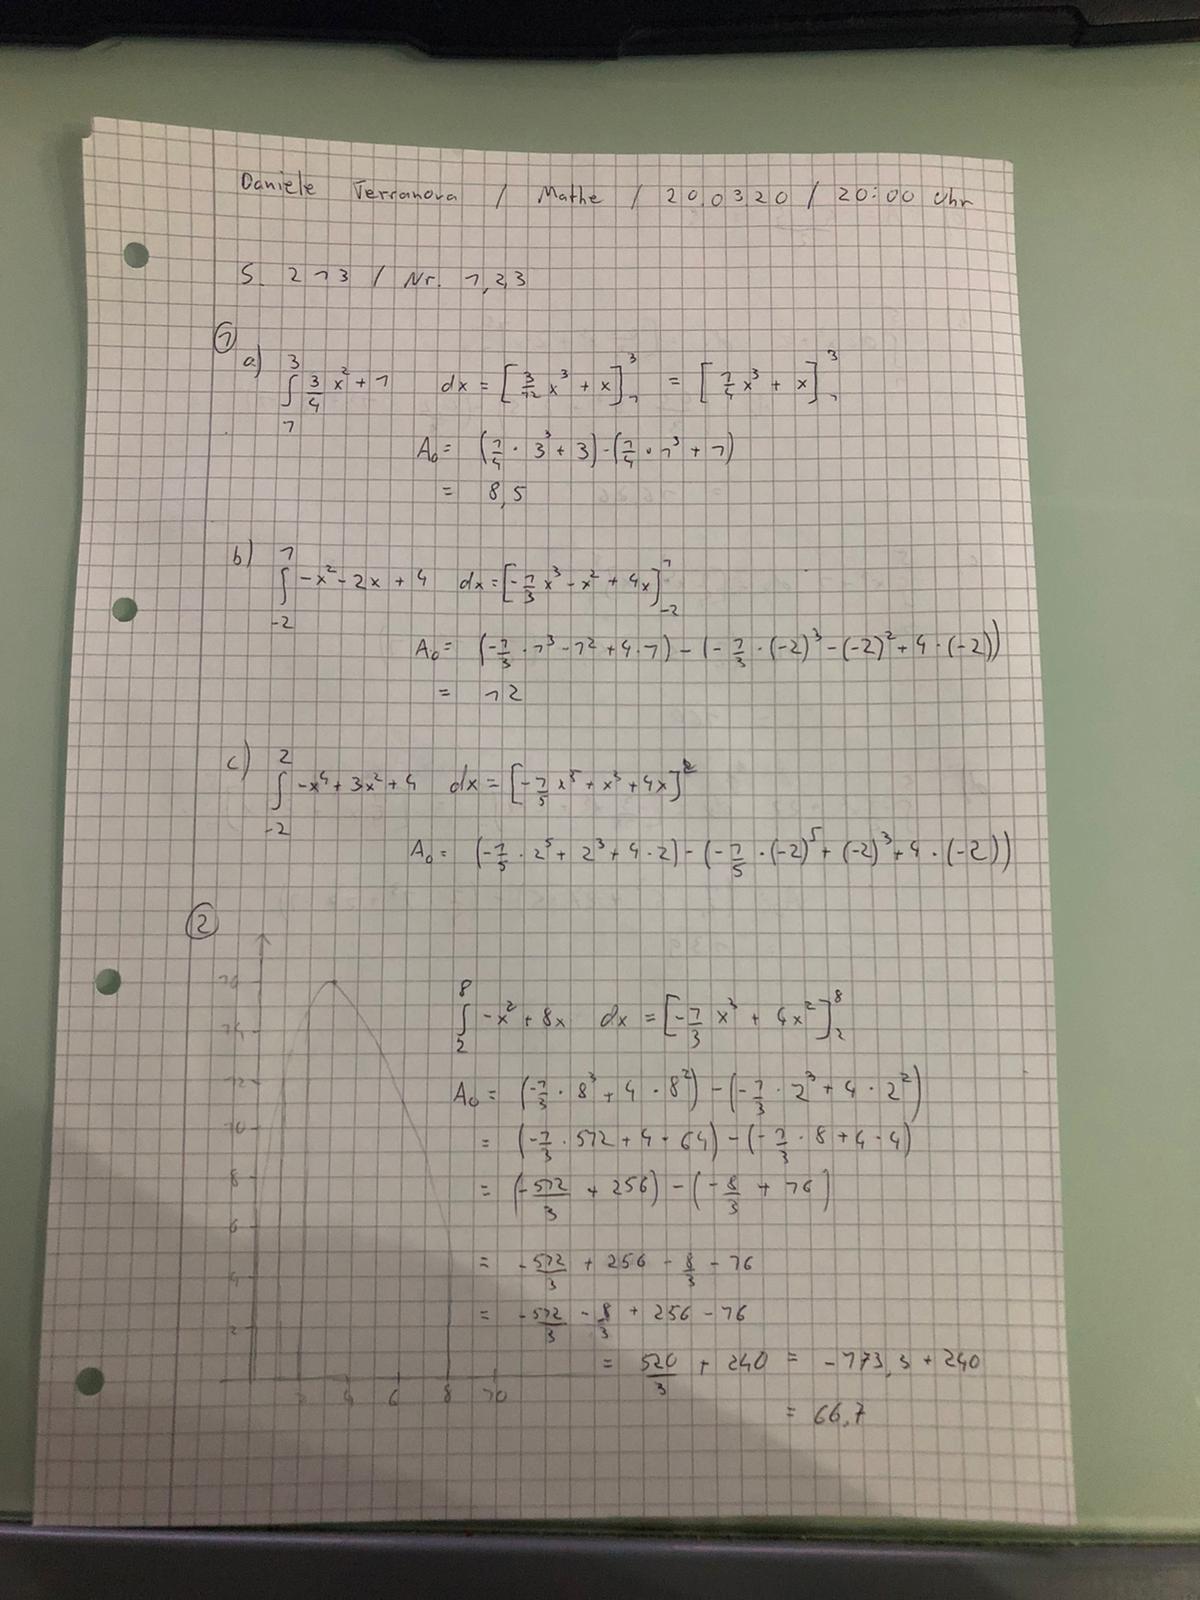 Daniele Terranova / Mathe / 20.03.20 / 20:00 Uhr
S. 213 / Nr. 1,2,3
①
a) ∫₁³ 3/4 x² + 1 dx = [3/12 x³ + x]₁³ = [1/4 x³ + x]₁³
A₀ = (1/4 · 3³ + 3) - (1/4 · 1³ + 1)
= 8,5
b) ∫₋₂¹ -x² - 2x + 4 dx = [-1/3 x³ - x² + 4x]₋₂¹
A₀ = (-1/3 · 1³ - 1² + 4 · 1) - (-1/3 · (-2)³ - (-2)² + 4 · (-2))
= 12
c) ∫₋₂² -x⁴ + 3x² + 4 dx = [-1/5 x⁵ + x³ + 4x]²
A₀ = (-1/5 · 2⁵ + 2³ + 4 · 2) - (-1/5 · (-2)⁵ + (-2)³ + 4 · (-2))
②
16
14
12
10
8
6
4
2
2 4 6 8 10
∫₂⁸ -x² + 8x dx = [-1/3 x³ + 4x²]₂⁸
A₀ = (-1/3 · 8³ + 4 · 8²) - (-1/3 · 2³ + 4 · 2²)
= (-1/3 · 512 + 4 · 64) - (-1/3 · 8 + 4 · 4)
= (-512/3 + 256) - (-8/3 + 16)
= -512/3 + 256 - 8/3 - 16
= -512/3 - 8/3 + 256 - 16
= 520/3 + 240 = -173,3 + 240
= 66,7